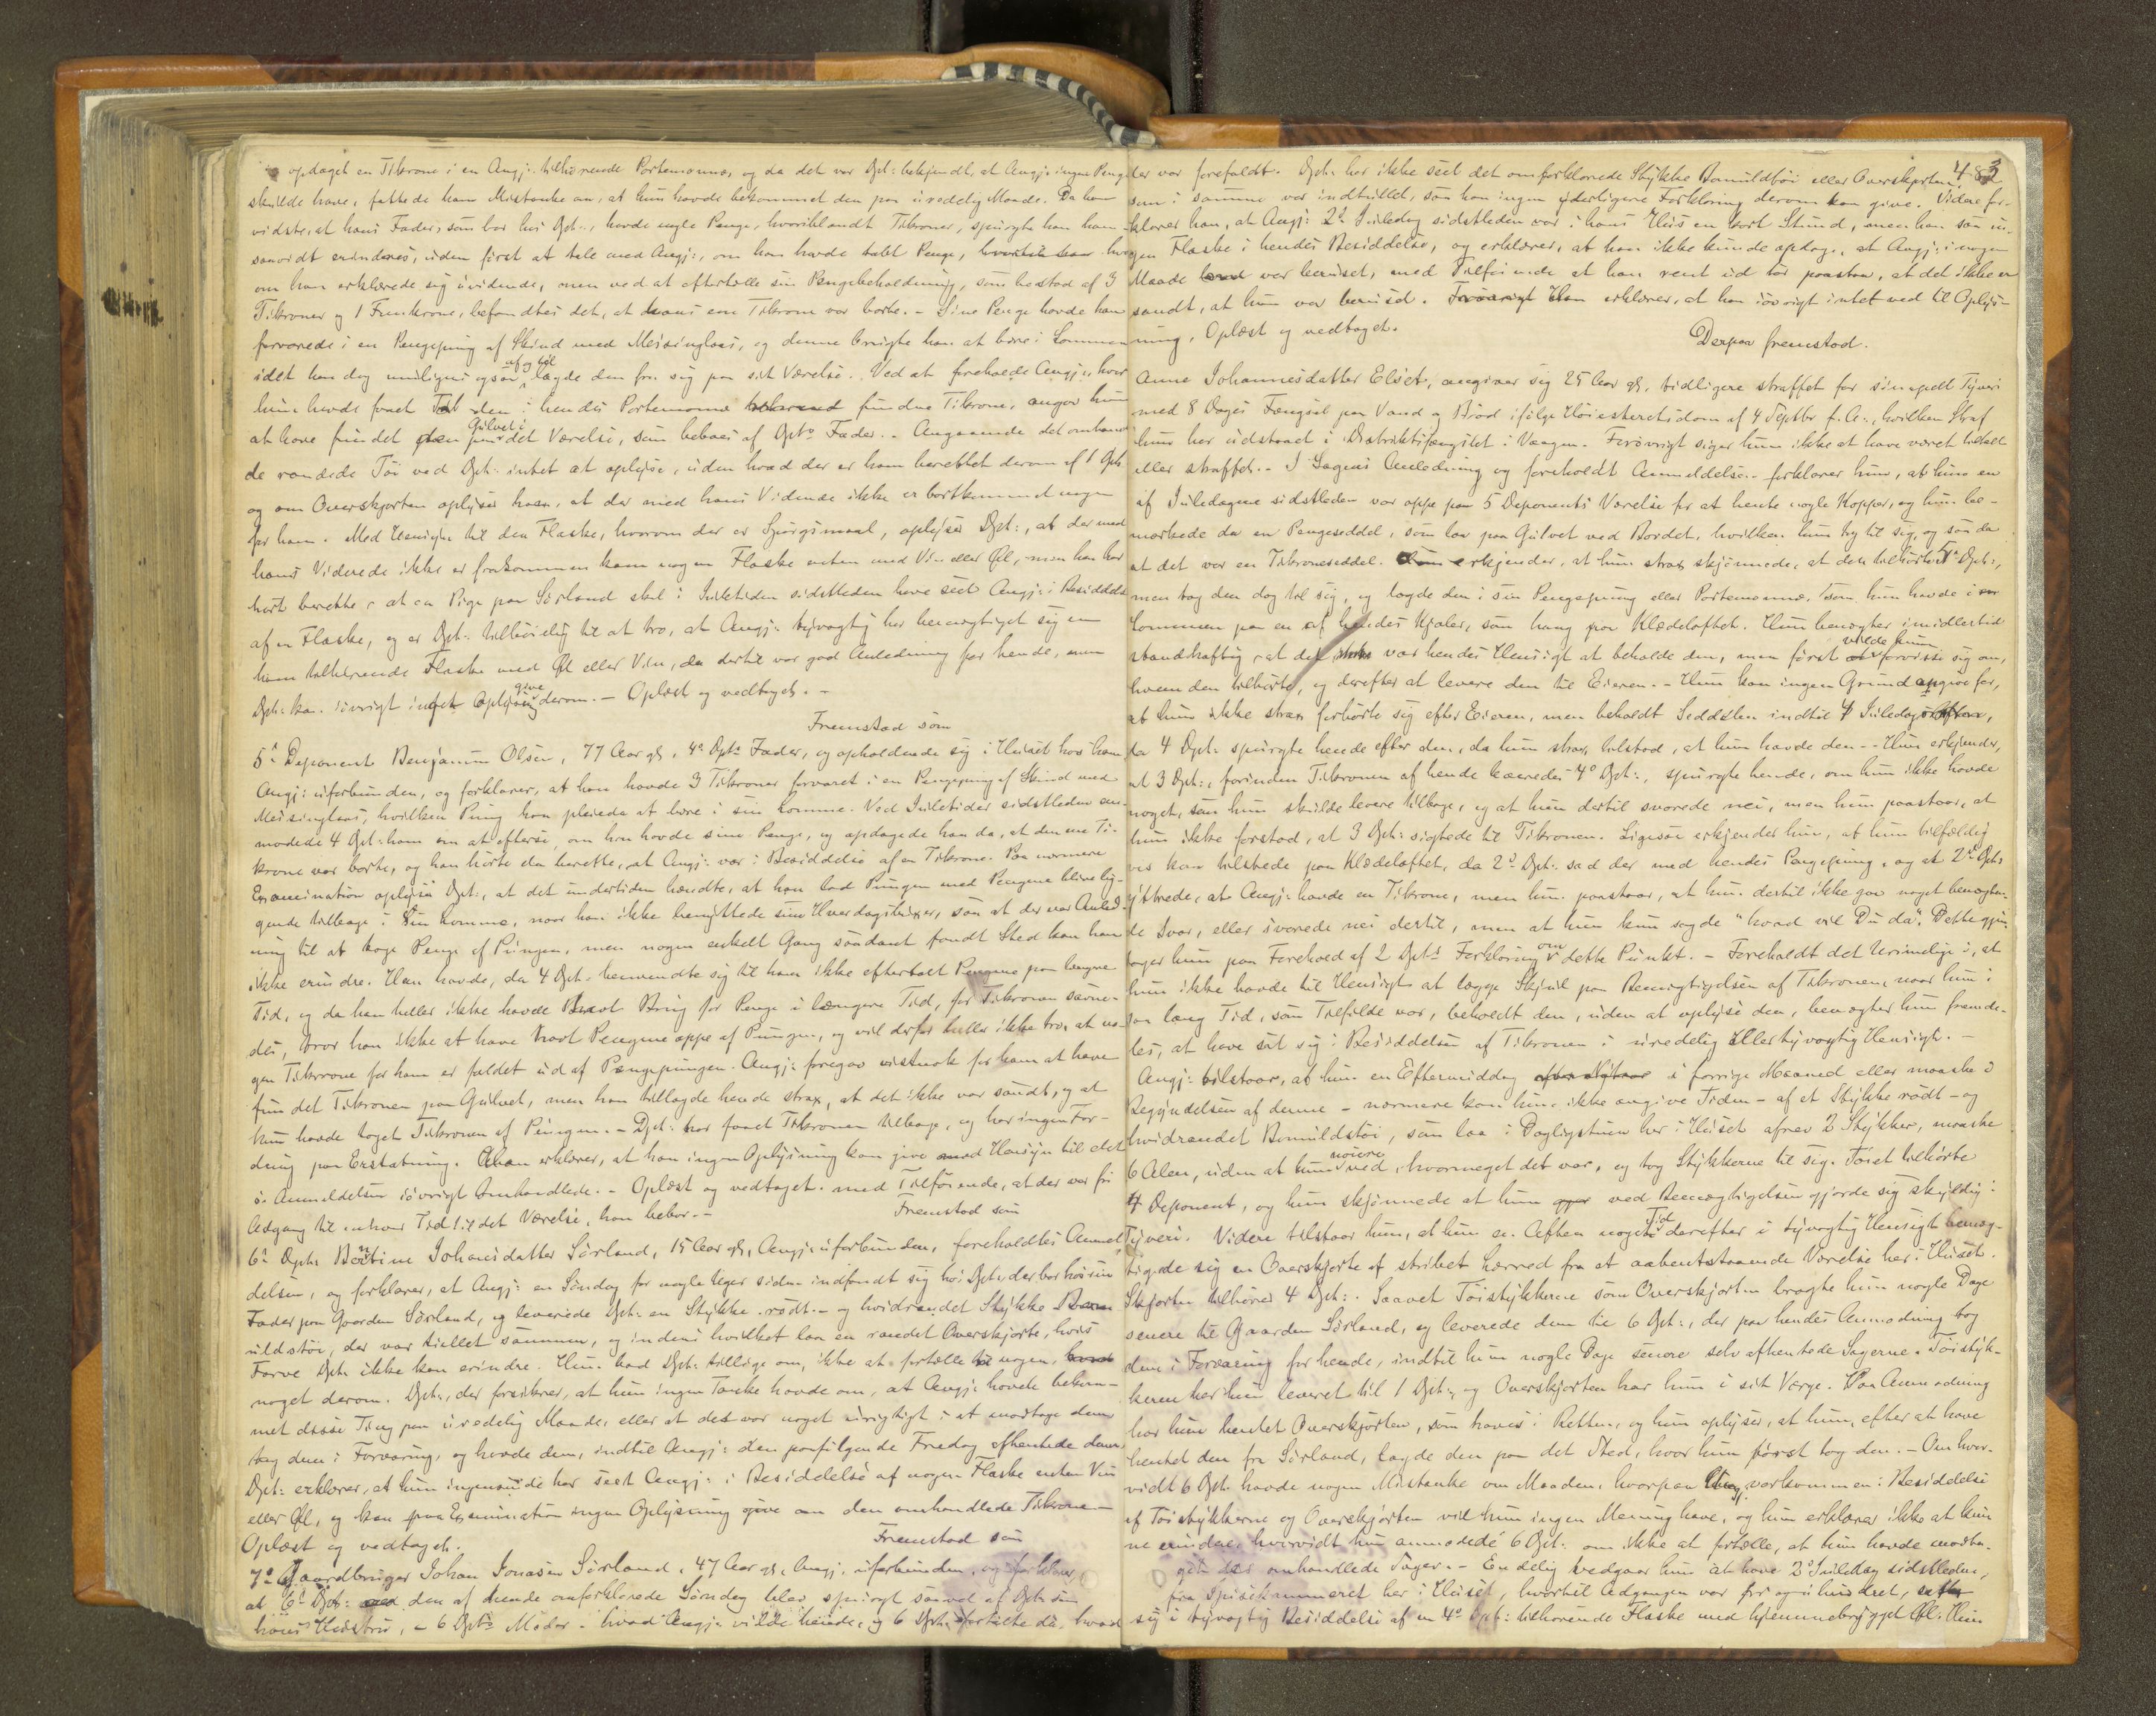 opdaget en Tikrone i en Angj:s tilhørende Portemonnæ, og da det var Dpt: bekjendt, at Angj: ingen Penge
skulde have, fattede han Mistanke om, at hun havde bekommet den paa uredelig Maade. Da han
vidste, at hans Fader, som bor hos Dpt:, havde nogle Penge, hvoriblandt Tikroner, spurgte han ham
saavidt erindres, uden først at tale med Angj:, om han havde talt Penge, hvor
om han erklærede sig uvidende, men ved at eftertælle sin Pengebeholdning, som bestod af 3
Tikroner og 1 Femkrone, befandtes det, at hans ene Tikrone var borte. - Sine Penge havde han
forvarede i en Pengepung af Skind med Messinglaas, og denne brugte han at bære i Lommen
idet han dog muligens ogsaa af og til lagde den fra sig paa sit Værelse. Ved at foreholde Angj:, hvor
hun havde faaet Tid den i hendes Portemonnæ fundne Tikrone, angav hun
at have fundet den paa Gulvet i det Værelse, som beboes af Dpts Fader. - Angaaende det omhand
de randede Tøi ved Dpt: intet at oplyse, uden hvad der er ham berettet derom af 1 Dpt.
og om Overskjorten oplyser han, at der med hans Vidende ikke er bortkommet nogen
for ham. Med Hensyn til den Flaske, hvorom der er Spørgsmaal, oplyser Dpt:, at der med
hans Vidende ikke er frakommen ham nogen Flaske enten med Vin eller Øl, men han har
hørt berette, at en Pige paa Sørland skal i Juletiden sidstleden have seet Angj: i Besiddelse
af en Flaske, og er Dpt: tilbøielig til at tro, at Angj: tyvagtig har bemægtiget sig en
ham tilhørende Flaske med Øl eller Vin, da dertil var god Anledning for hende, men
Dpt: kan iøvrigt intet Oplysning give derom. - Oplæst og vedtaget. -
Fremstod som
5te Deponent Benjamin Olsen, 77 Aar gl, 4de Dpts Fader, og opholdende sig i Huset hos ham
Angj: uforbunden, og forklarer, at han havde 3 Tikroner forvaret i en Pengepung af Skind med
Messinglaas, hvilken Pung han pleiede at bære i sin Lomme. Ved Juletider sidstleden an-
modede 4 Dpt: ham om at efterse, om han havde sine Penge, og opdagede han da, at den ene Ti-
krone var borte, og han hørte da berette, at Angj: var i Besiddelse af en Tikrone. Paa nærmere
Examination oplyser Dpt:, at det undertiden hændte, at han lod Pungen med Pengene blive lig-
gende tilbage i sin Lomme, naar han ikke benyttede sine Hverdagsbuxer, saa at der var Anled-
ning til at tage Penge af Pungen, men nogen enkelt Gang saadant fandt Sted kan han
ikke erindre. Han havde, da 4 Dpt: henvendte sig til ham ikke eftertalt Pengene paa længere
Tid, og da han heller ikke havde havt Brug for Penge i længere Tid, før Tikronen savne-
des, tror han ikke at have havt Pengene oppe af Pungen, og vil derfor heller ikke tro, at no-
gen Tikrone for ham er faldet ud af Pengepungen. Angj: foregav vistnok for ham at have
fundet Tikronen paa Gulvet, men han tillagde hende strax, at det ikke var sandt, og at
hun havde taget Tikronen af Pungen. - Dpt: har faaet Tikronen tilbage, og har ingen For-
dring paa Erstatning. Han erklærer, at han ingen Oplysning kan give med Hensyn til det
i Anmeldelsen iøvrigt Omhandlede. - Oplæst og vedtaget med Tilføiende, at der var fri
Adgang til enhver Tid til det Værelse, han bebor. -
Fremstod som
6te Dpt: Bentine Johansdatter Sørland, 15 Aar gl, Angj: uforbunden, foreholdtes Anmel-
delsen, og forklarer, at Angj: en Søndag for nogle Uger siden indfandt sig hos Dpt:, der bor hos sin
Fader paa Gaarden Sørland, og leverede Dpt: en Stykke rødt- og hvidrandet Stykke Bom
uldstøi, der var tullet sammen, og indeni hvilket laa en randet Overskjorte, hvis
Farve Dpt: ikke kan erindre. Hun bad Dpt: tillige om, ikke at fortælle til nogen,
noget derom. Dpt:, der forsikrer, at hun ingen Tanke havde om, at Angj: havde bekom-
met disse Ting paa uredelig Maade, eller at det var noget urigtigt i at modtage dem
tog dem i Forvaring, og havde dem, indtil Angj: den paafølgende Fredag afhentede dem.
Dpt: erklærer, at hun ingensinde har seet Angj: i Besiddelse af nogen Flaske enten Vin
eller Øl, og kan paa Examination ingen Oplysning give om den omhandlede Tikrone -
Oplæst og vedtaget.
Fremstod som
7de Gaardbruger Johan Jonasen Sørland, 47 Aar gl, Angj: uforbunden, og forklarer,
at 6te Dpt: den af hende omforklarede Søndag blev spurgt saavel af Dpt: som
hans Hustru, - 6 Dpts Moder - hvad Angj: vilde hende, og 6 Dpt: fortalte da, hvad
483
der var forefaldt. Dpt: har ikke seet det omforklarede Stykke Bomuldtøi eller Overskjorten,
som i samme var indtullet, saa han ingen yderligere Forklaring derom kan give. Videre for-
klarer han, at Angj: 2de Juledag sidstleden var i hans Hus en kort Stund, men han saa in-
gen Flaske i hendes Besiddelse, og erklærer, at han ikke kunde opdage, at Angj: i nogen
Maade var beruset, med Tilføiende at han rent ud tør paastaa, at det ikke er
sandt, at hun var beruset. Forøvrigt Han erklærer, at han iøvrigt intet ved til Oplys-
ning. Oplæst og vedtaget.
Derpaa fremstod.
Anne Johannesdatter Elset, angiver sig 25 Aar gl, tidligere straffet for simpelt Tyveri
med 8 Dages Fængsel paa Vand og Brød ifølge Høiesteretsdom af 4 Septbr f. A., hvilken Straf
hun har udstaaet i Distriktsfængslet i Vaagen. Forøvrigt siger hun ikke at have været tiltalt
eller straffet. - I Sagens Anledning og foreholdt Anmeldelsen forklarer hun, at hun en
af Juledagene sidstleden var oppe paa 5 Deponents Værelse for at hente nogle Kopper, og hun be-
mærkede da en Pengeseddel, som laa paa Gulvet ved Bordet, hvilken hun tog til sig, og saa da
at det var en Tikroneseddel. Hun erkjender, at hun strax skjønnede, at den tilhørte 5te Dpt:,
men tog den dog til sig, og lagde den i sin Pengepung eller Portemonnæ, som hun havde i
Lommen paa en af hendes Kjoler, som hang paa Klædeloftet. Hun benægter imidlertid
standhaftig, at det var hendes Hensigt at beholde den, men først vilde hun forvisse sig om,
hvem den tilhørte, og derefter at levere den til Eieren. - Hun kan ingen Grund angive for,
at hun ikke strax forhørte sig efter Eieren, men beholdt Seddelen indtil 4 Juledags Aften,
da 4 Dpt: spurgte hende efter den, da hun strax tilstod, at hun havde den. - Hun erkjender,
at 3 Dpt:, forinden Tikronen af hende leveredes 4de Dpt:, spurgte hende, om hun ikke havde
noget, som hun skulde levere tilbage, og at hun dertil svarede nei, men hun paastaar, at
hun ikke forstod, at 3 Dpt: sigtede til Tikronen. Ligesaa erkjender hun, at hun tilfældig
vis kom tilstede paa Klædeloftet, da 2de Dpt: sad der med hendes Pengepung, og at 2de Dpt:
yttrede, at Angj: havde en Tikrone, men hun paastaar, at hun dertil ikke gav noget benægten-
de Svar, eller svarede nei dertil, men at hun kun sagde "hvad vil Du da". Dette gjen-
tager hun paa Forehold af 2 Dpts Forklaring om dette Punkt. - Foreholdt det Urimelige i, at
hun ikke havde til Hensigt at lægge Skjul paa Bemægtigelsen af Tikronen, naar hun i
saa lang Tid, som Tilfælde var, beholdt den, uden at oplyse den, benægter hun fremde-
les, at have sat sig i Besiddelse af Tikronen i uredelig eller tyvagtig Hensigt. -
Angj: tilstaar, at hun en Eftermiddag i forrige Maaned eller maaske i
Begyndelsen af denne - nærmere kan hun ikke angive Tiden - af et Stykke rødt- og
hvidrandet Bomuldstøi, som laa i Dagligstuen her i Huset afrev 2 Stykker, maaske
6 Alen, uden at hun nøiere ved, hvormeget det var, og tog Stykkerne til sig. Tøiet tilhørte
4 Deponent, og hun skjønnede at hun ved Bemægtigelsen gjorde sig skyldig i
Tyveri. Videre tilstaar hun, at hun en Aften nogen Tid derefter i tyvagtig Hensigt bemæg-
tigede sig en Overskjorte af stribet Lærred fra et aabentstaaende Værelse her i Huset.
Skjorten tilhører 4 Dpt:. Saavel Tøistykkerne som Overskjorten bragte hun nogle Dage
senere til Gaarden Sørland, og leverede dem til 6 Dpt:, der paa hendes Anmodning tog
dem i Forvaring for hende, indtil hun nogle Dage senere selv afhentede Sagerne. Tøistyk-
kerne har hun leveret til 1 Dpt:, og Overskjorten har hun i sit Værge. Paa Anmodning
har hun hentet Overskjorten, som haves i Retten, og hun oplyser, at hun, efter at have
hentet den fra Sørland, lagde den paa det Sted, hvor hun først tog den. - Om hvor-
vidt 6 Dpt: havde nogen Mistanke om Maaden, hvorpaa Angj: var kommen i Besiddelse
af Tøistykkerne og Overskjorten vil hun ingen Mening have, og hun erklærer ikke at kun
ne erindre, hvorvidt hun anmodede 6 Dpt: om ikke at fortælle, at hun havde modta-
get de omhandlede Sager. - Endelig vedgaar hun at have 2de Juledag sidstleden,
fra Spisekammeret her i Huset, hvortil Adgangen var fri og uhindret, sat
sig i tyvagtig Besiddelse af en 4de Dpt: tilhørende Flaske med hjemmebrygget Øl. Hun